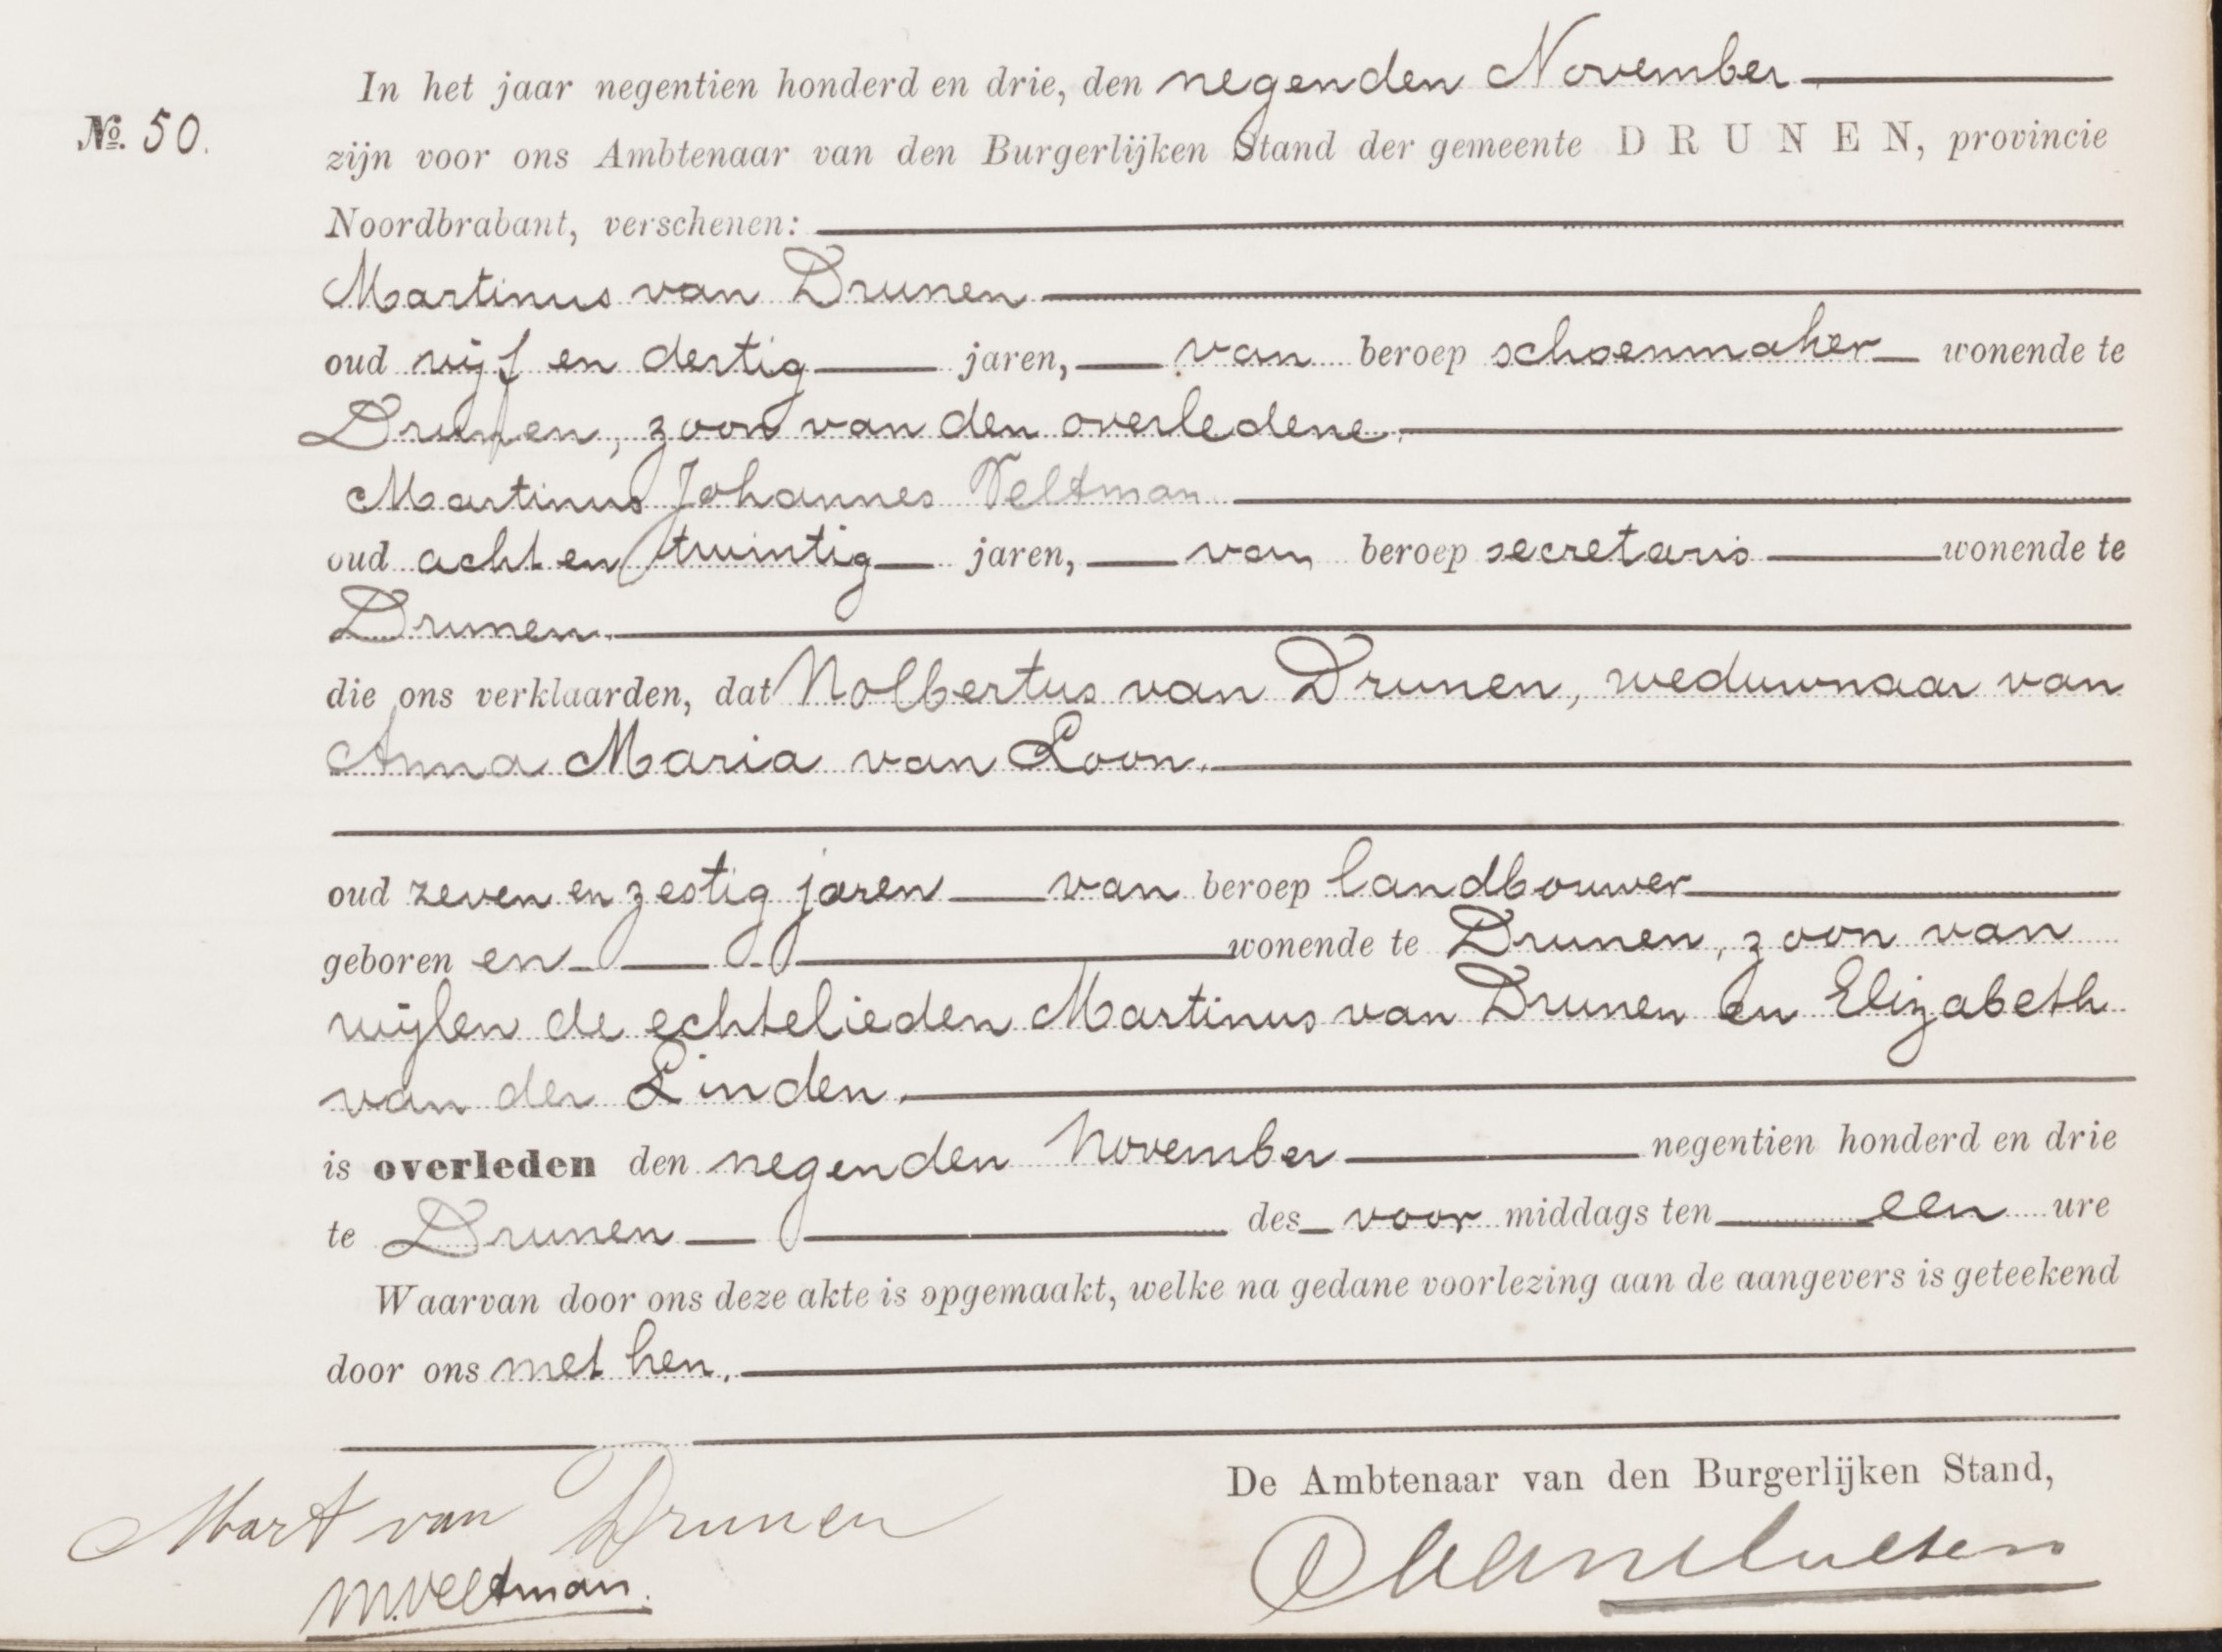 In het jaar negentien honderd en drie, den negenden November
No. 50.
zijn voor ons Ambtenaar van den Burgerlijken Stand der gemeente DRUNEN, provincie
Noordbrabant, verschenen:
Martinus van Drunen
oud vijf en dertig jaren, van beroep schoenmaker wonende te
Drunen, zoon van den overledene.
Martinus Johannes Veltman
oud acht en twintig jaren, van beroep secretaris wonende te
Drunen.
die ons verklaarden, dat Nolbertus van Drunen, weduwnaar van
Anna Maria van Loon.
oud zeven en zestig jaren van beroep landbouwer
geboren en wonende te Drunen, zoon van
wijlen de echtelieden Martinus van Drunen en Elizabeth
van der Linden.
is overleden den negenden November negentien honderd en drie
te Drunen des voor middags ten een ure
Waarvan door ons deze akte is opgemaakt, welke na gedane voorlezing aan de aangevers is geteekend
door ons met hen.
De Ambtenaar van den Burgerlijken Stand,
Mart van Drunen
M. Veltman.